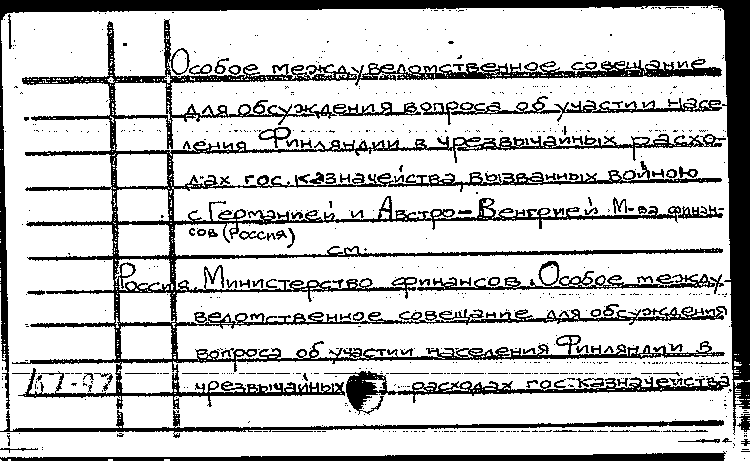 Особое междуведомственное совещание
для обсуждения вопроса об участии насе-
ления Финляндии в чрезвычайных расхо-
дах гос. казначейства, вызванных войною
с Германией и Австро-Венгрией. М-ва финан-
сов (Россия)
см.
Россия. Министерство финансов. Особое между-
ведомственное совещание для обсуждения
вопроса об участии населения Финляндии в
чрезвычайных расходах гос. казначейства